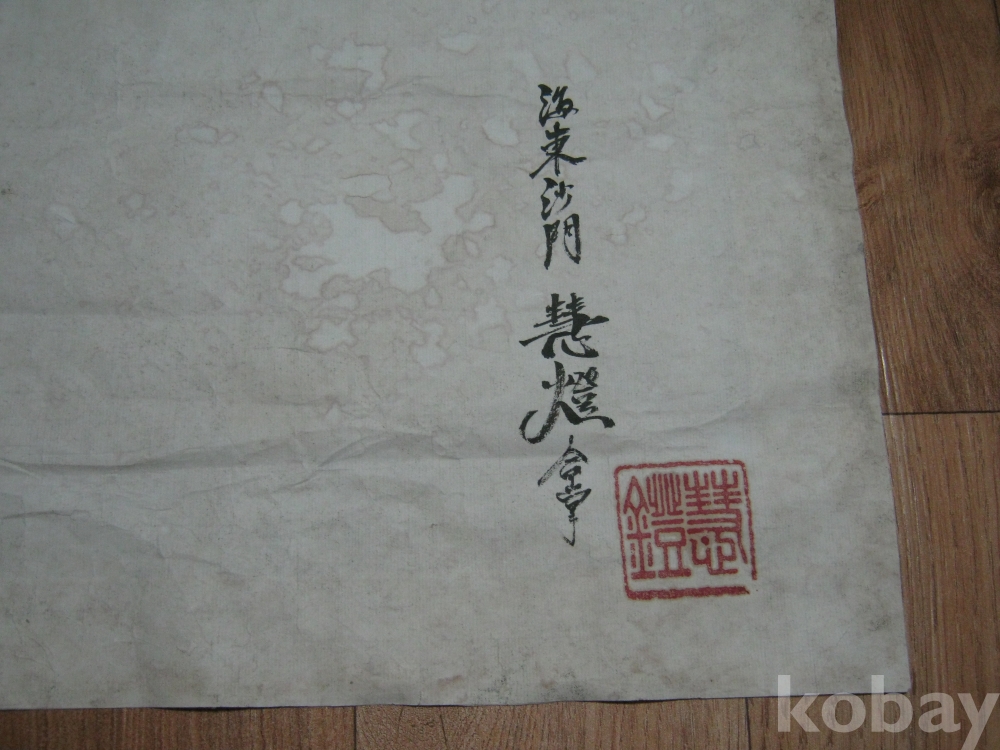 海東沙門 慧燈 合掌
慧鐙
kobay